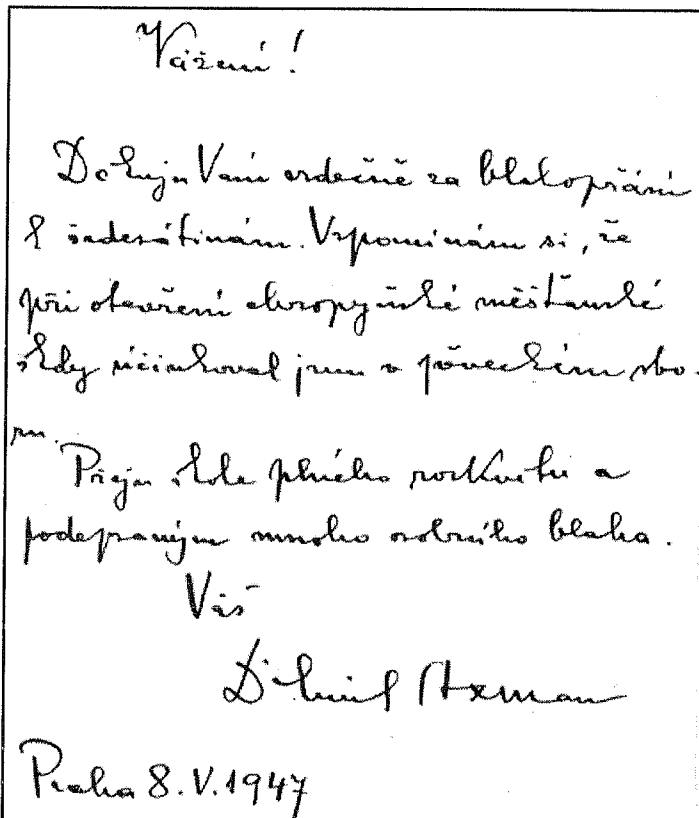 Vážení!
Děkuju Vám srdečně za blahopřání
k šedesátinám. Vzpomínám si, že
při otevření chropyňské měšťanské
školy účinkoval jsem v pěveckém sbo-
ru.
Přeju škole plného rozkvětu a
podepsaným mnoho osobního blaha.
Váš
Dr Emil Axman
Praha 8.V.1947